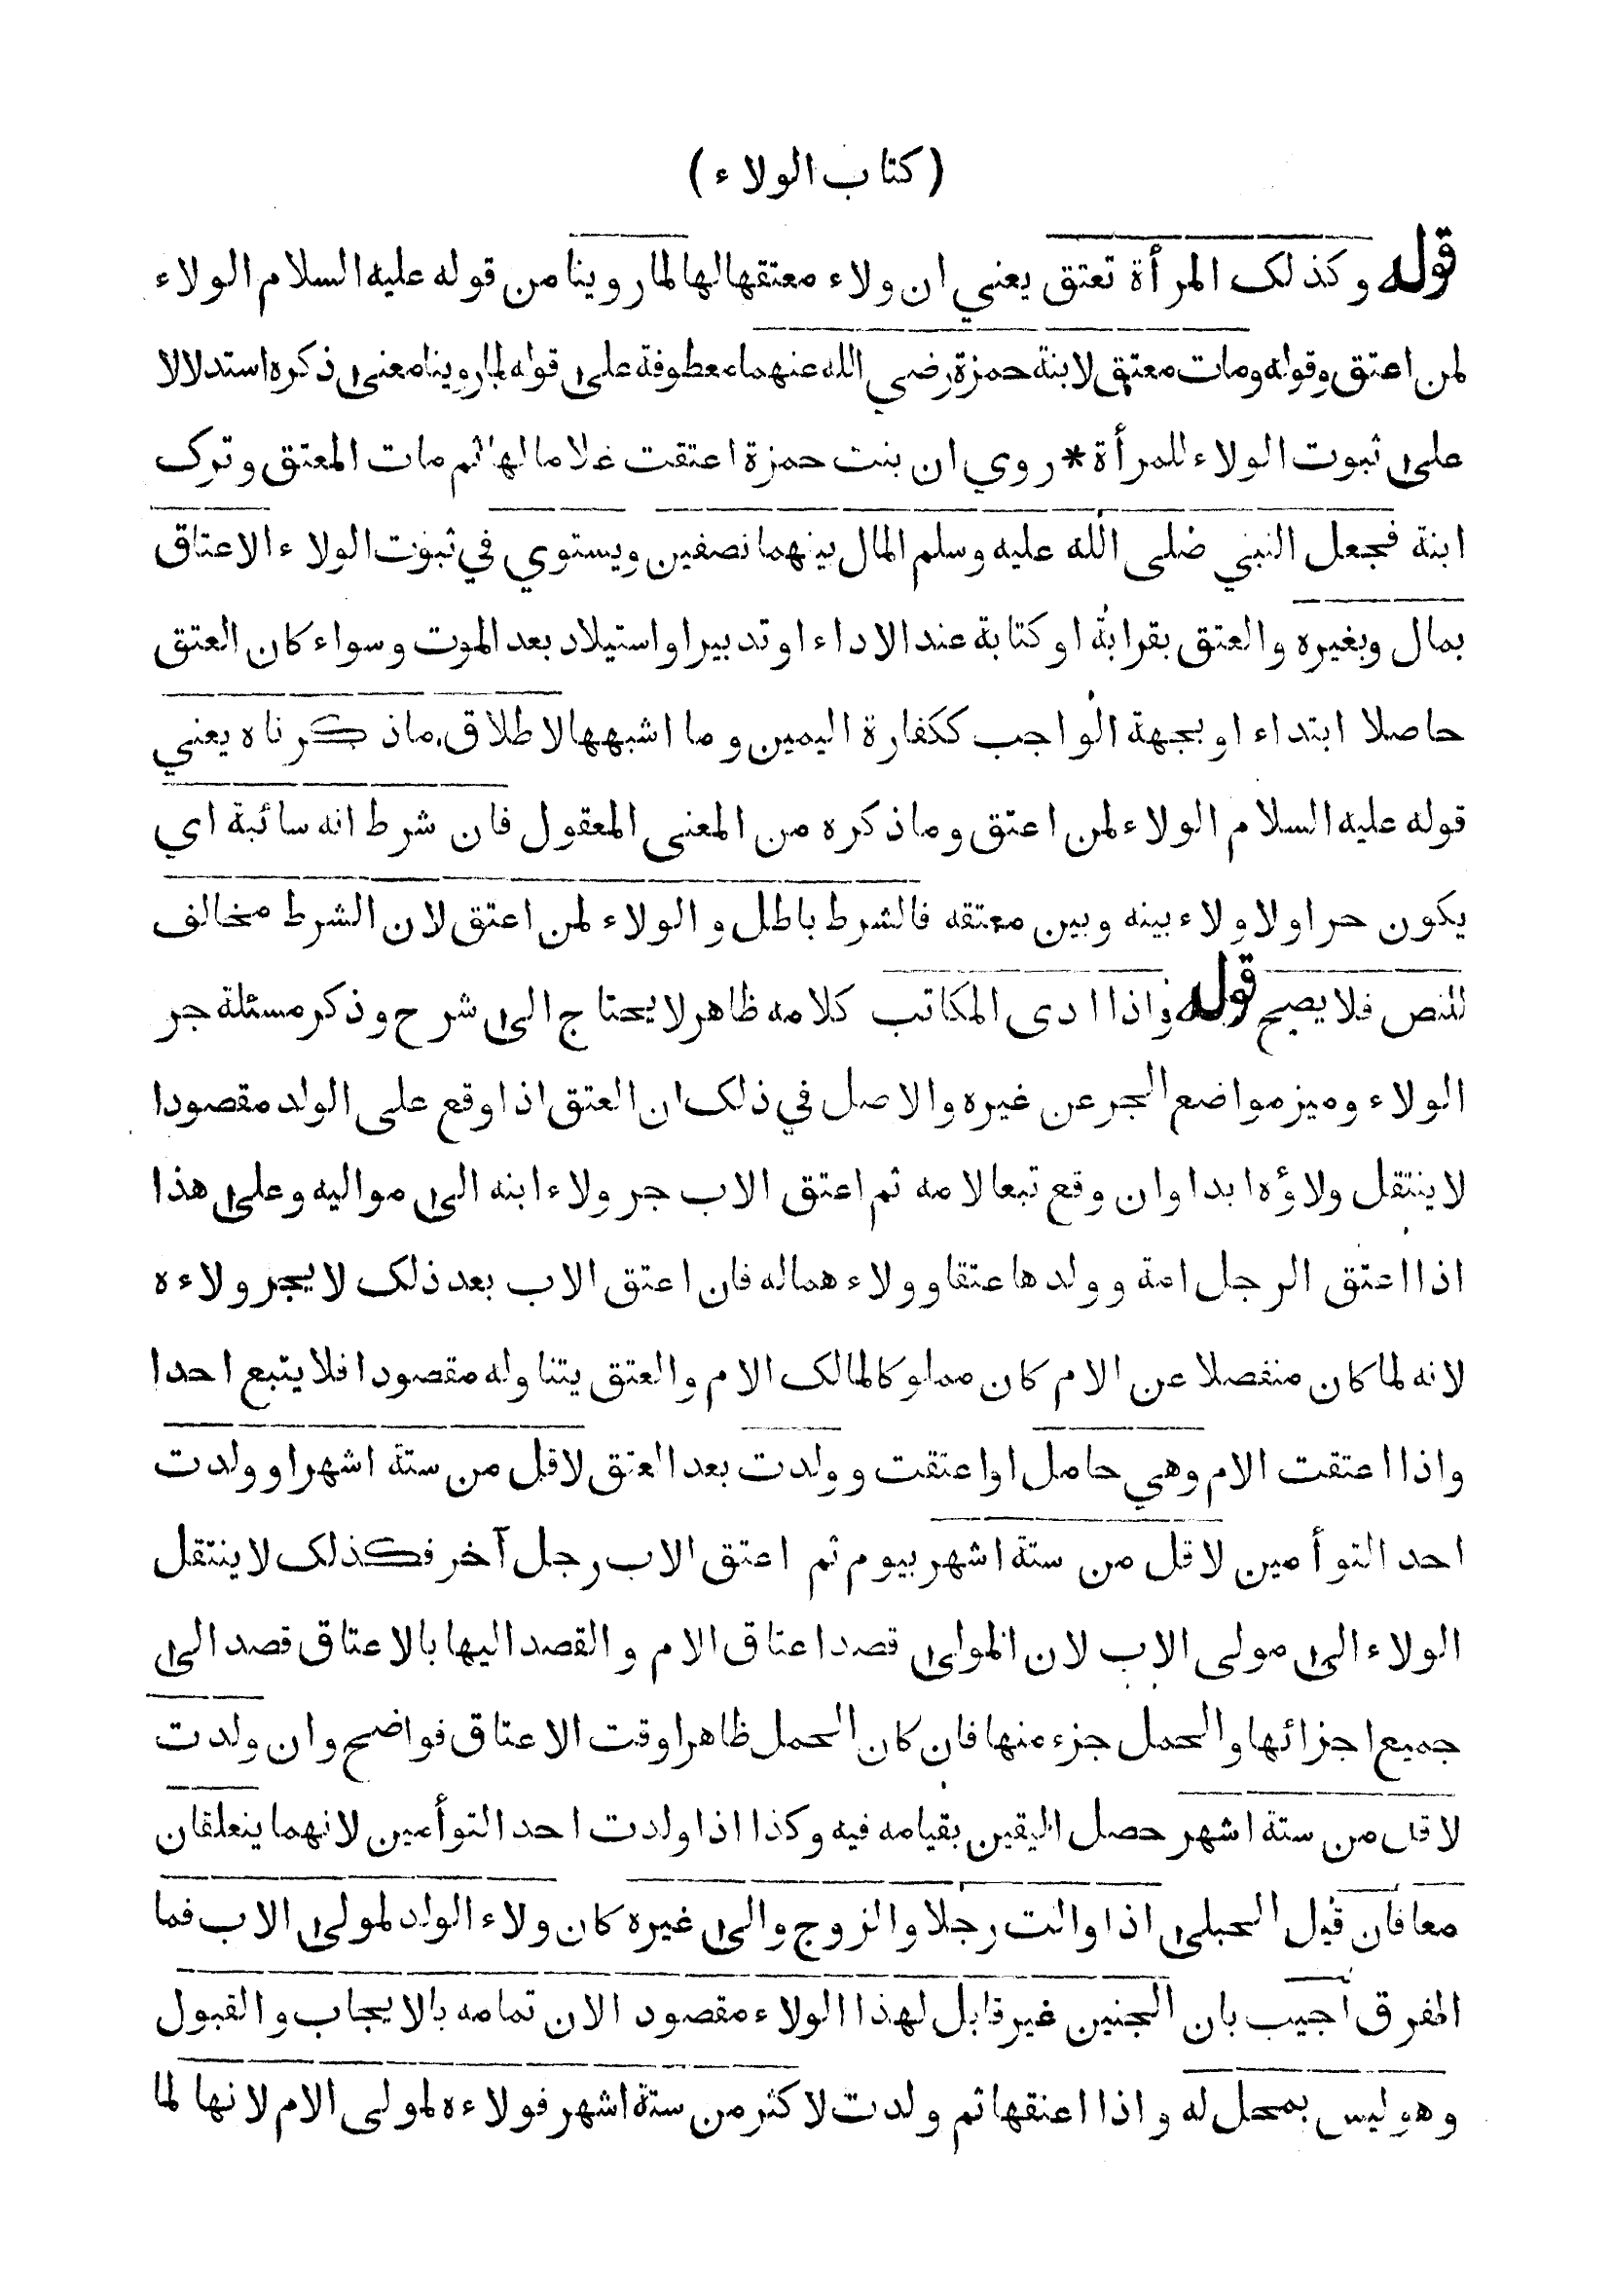 (كتاب الولاء)
قوله وكذلك المرأة تعتق يعني ان ولاء معتقها لها لما روينا من قوله عليه السلام الولاء
لمن اعتق وقوله ومات معتق لابنة حمزة رضي الله عنهما معطوفة على قوله لما روينا معنى ذكره استدلالا
على ثبوت الولاء للمرأة * روي ان بنت حمزة اعتقت غلاما لها ثم مات المعتق وترك
ابنة فجعل النبي صلى الله عليه وسلم المال بينهما نصفين ويستوي في ثبوت الولاء الاعتاق
بمال وبغيره والعتق بقرابة او كتابة عند الاداء او تدبير او استيلاد بعد الموت وسواء كان العتق
حاصلا ابتداء او بجهة الواجب ككفارة اليمين وما اشبهها لاطلاق ما ذكرناه يعني
قوله عليه السلام الولاء لمن اعتق وما ذكره من المعنى المعقول فان شرط انه سائبة اي
يكون حرا ولا ولاء بينه وبين معتقه فالشرط باطل والولاء لمن اعتق لان الشرط مخالف
للنص فلا يصح قوله واذا ادى المكاتب كلامه ظاهر لا يحتاج الى شرح وذكر مسئلة جر
الولاء وميز مواضع الجر عن غيره والاصل في ذلك ان العتق اذا وقع على الولد مقصودا
لا ينتقل ولاؤه ابدا وان وقع تبعا لامه ثم اعتق الاب جر ولاء ابنه الى مواليه وعلى هذا
اذا اعتق الرجل امة وولدها عتقا وولاءهما له فان اعتق الاب بعد ذلك لا يجر ولاءه
لانه لما كان منفصلا عن الام كان مملوكا لمالك الام والعتق يتناوله مقصودا فلا يتبع احدا
واذا اعتقت الام وهي حامل او اعتقت وولدت بعد العتق لاقل من ستة اشهر او ولدت
احد التوأمين لاقل من ستة اشهر بيوم ثم اعتق الاب رجل آخر فكذلك لا ينتقل
الولاء الى مولى الاب لان المولى قصد اعتاق الام والقصد اليها بالاعتاق قصد الى
جميع اجزائها والحمل جزء منها فان كان الحمل ظاهرا وقت الاعتاق فواضح وان ولدت
لاقل من ستة اشهر حصل اليقين بقيامه فيه وكذا اذا ولدت احد التوأمين لانهما يتعلقان
معا فان قيل الحبلى اذا والت رجلا والزوج والى غيره كان ولاء الولد لمولى الاب فما
الفرق اجيب بان الجنين غير قابل لهذا الولاء مقصود الان تمامه بالايجاب والقبول
وهو ليس بمحل له واذا اعتقها ثم ولدت لاكثر من ستة اشهر فولاءه لمولى الام لانها لما